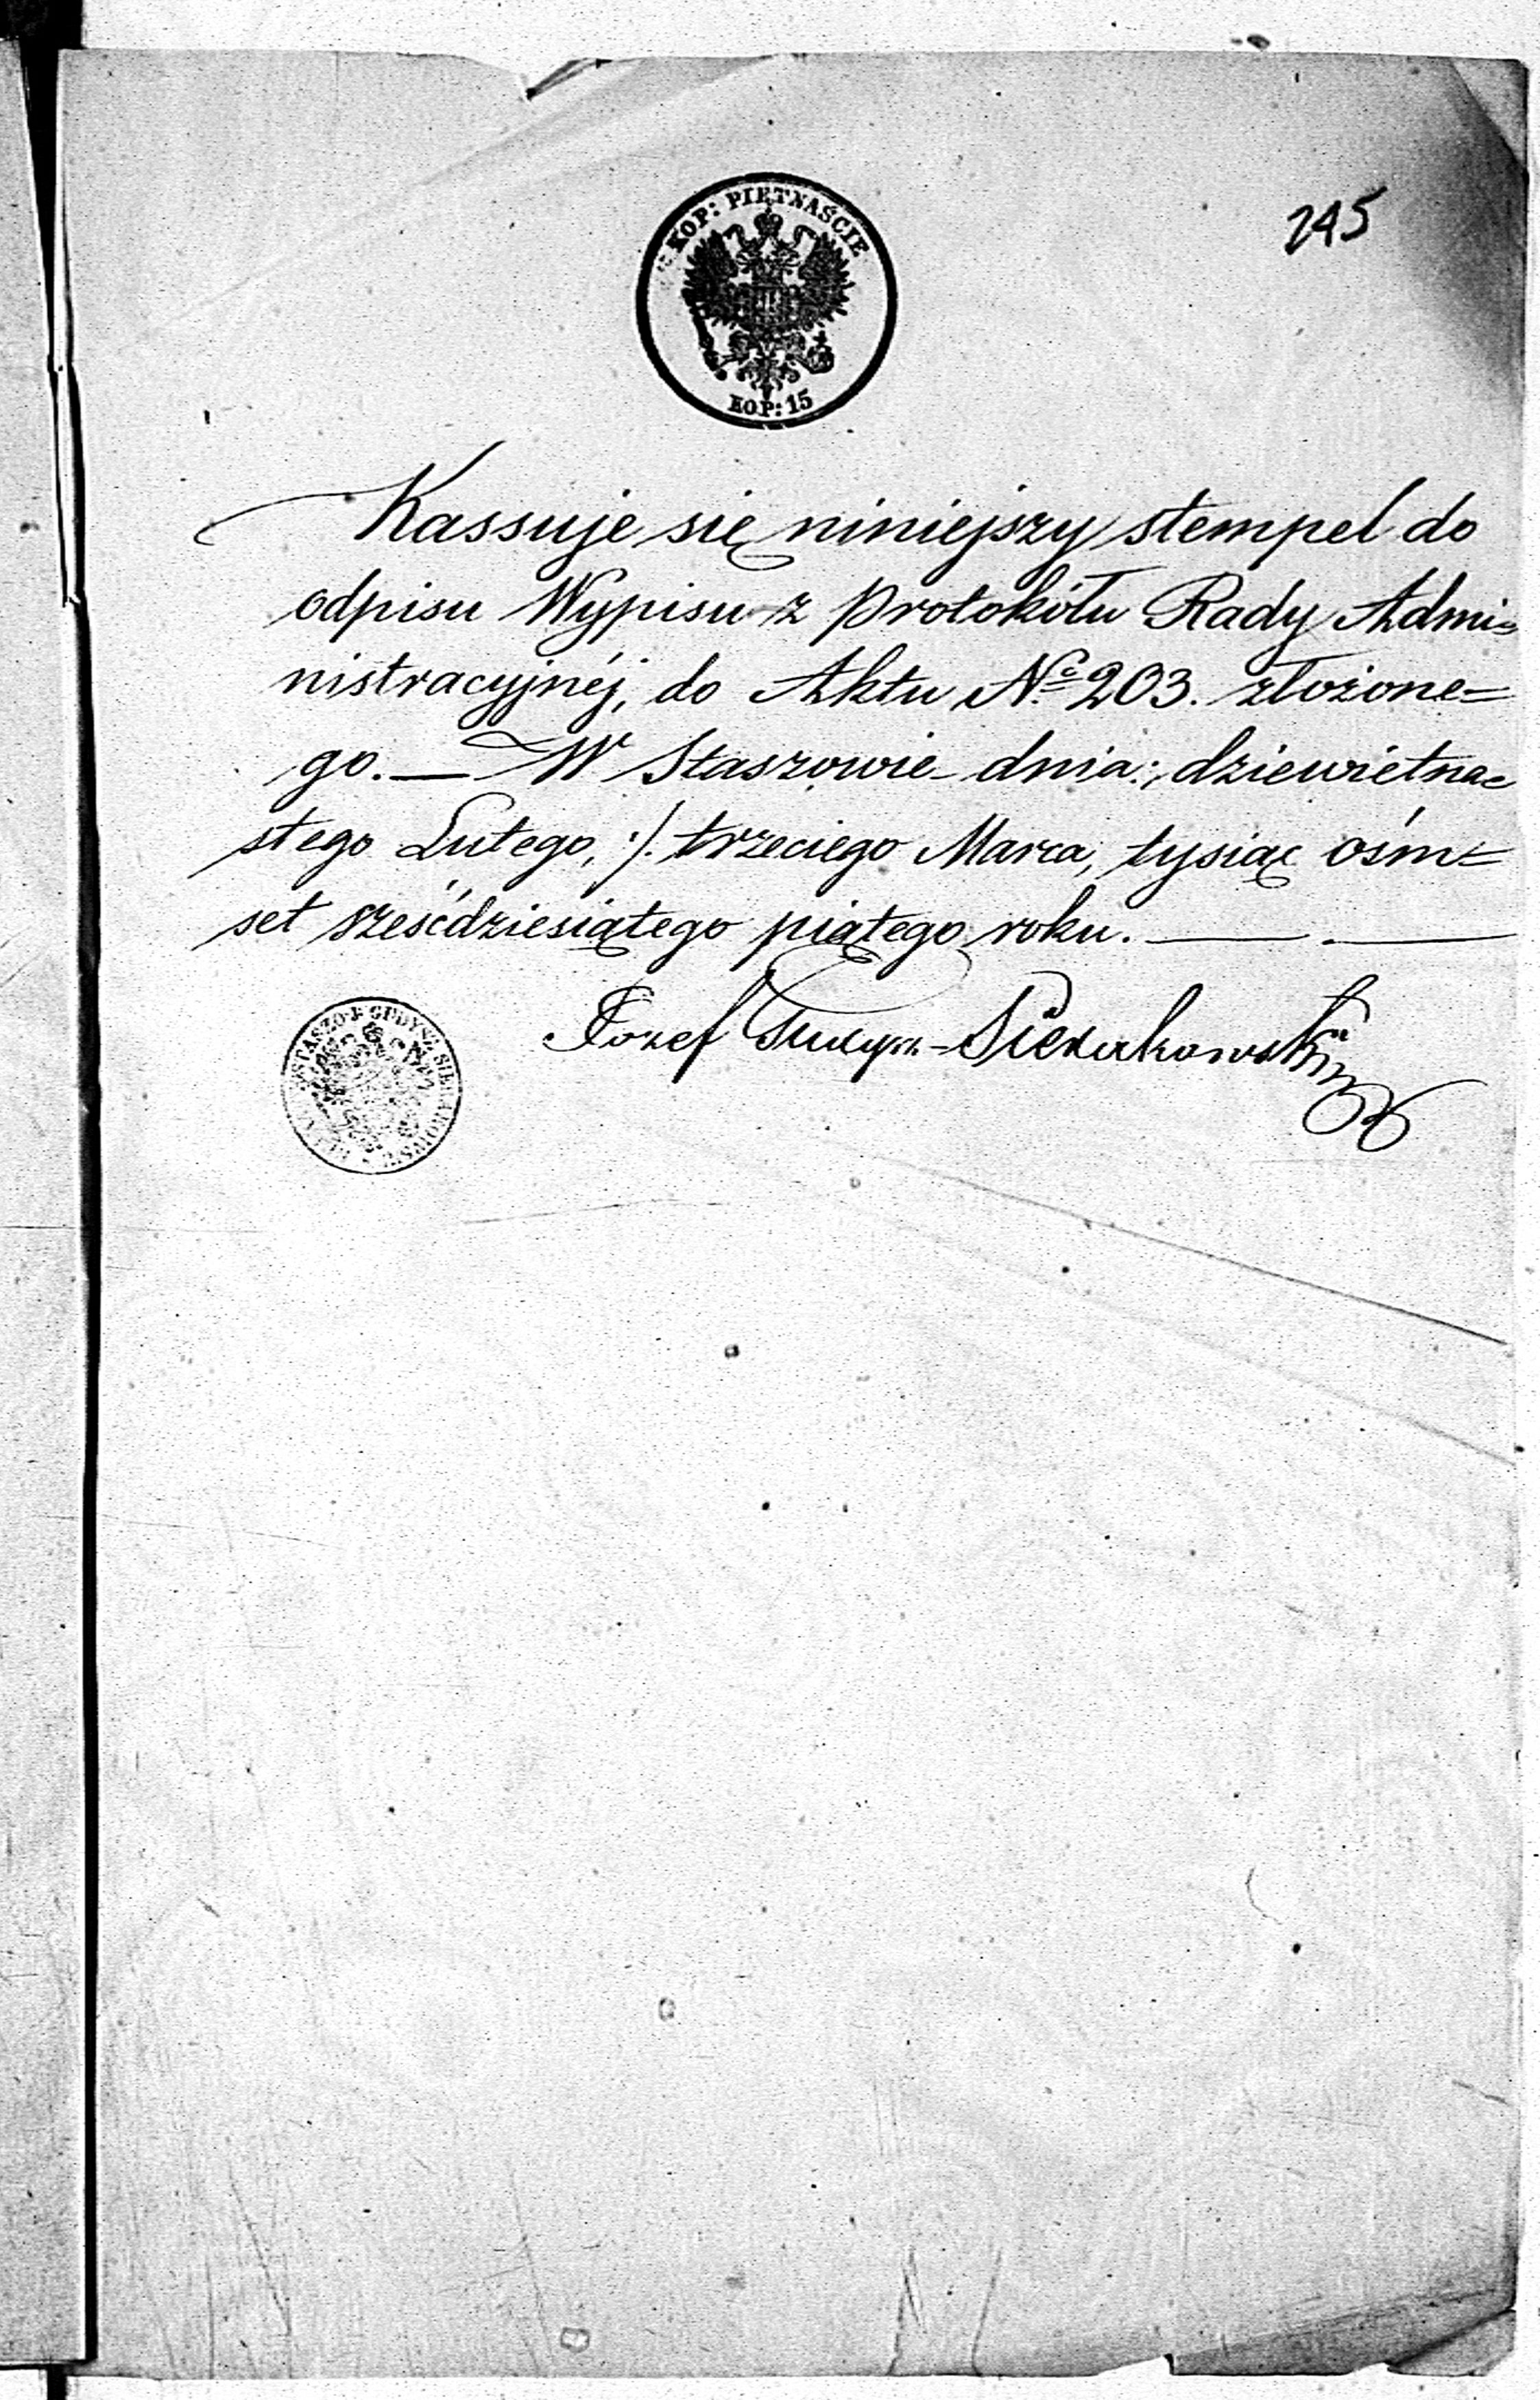 KOP: PIĘTNAŚCIE
245
KOP: 15
Kassuje się niniejszy stempel do
odpisu Wypisu z Protokółu Rady Admi=
nistracyjnéj, do Aktu No 203. złożone=
go. — W Staszowie dnia: dziewietna
stego Lutego, :/. trzeciego Marca, tysiąc ośm=
set sześćdziesiątego piątego roku. — . —
Józef Gudysz-Sierakowski